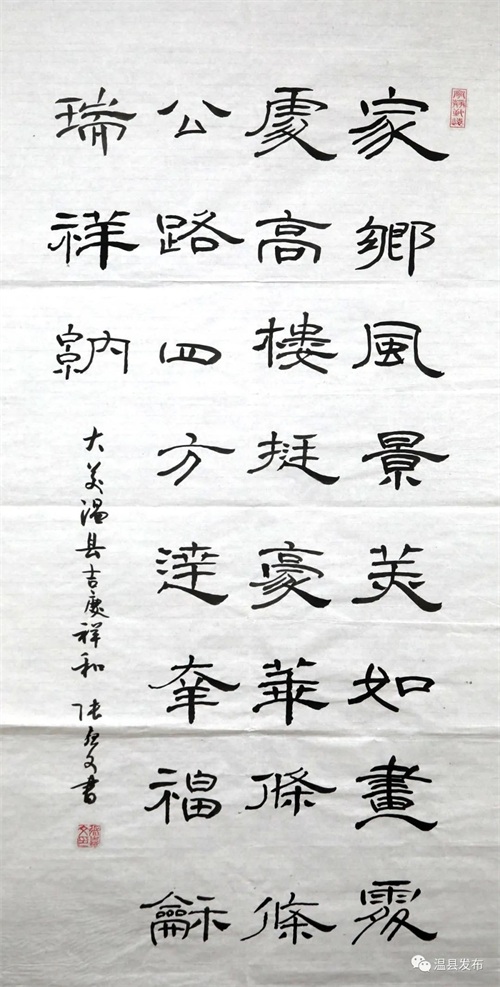 家鄉風景美如畫處
處高樓挺豪華條條
公路四方達幸福龢
瑞祥納
大美温县吉慶祥和 张文書
温县发布